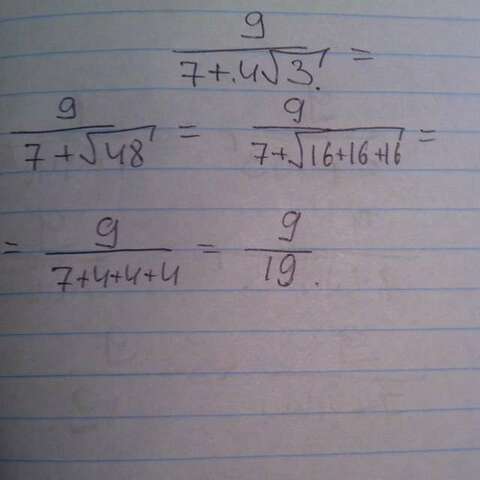 9/(7+.4√3.) =
9/(7+√48) = 9/(7+√(16+16+16)) =
= 9/(7+4+4+4) = 9/19.